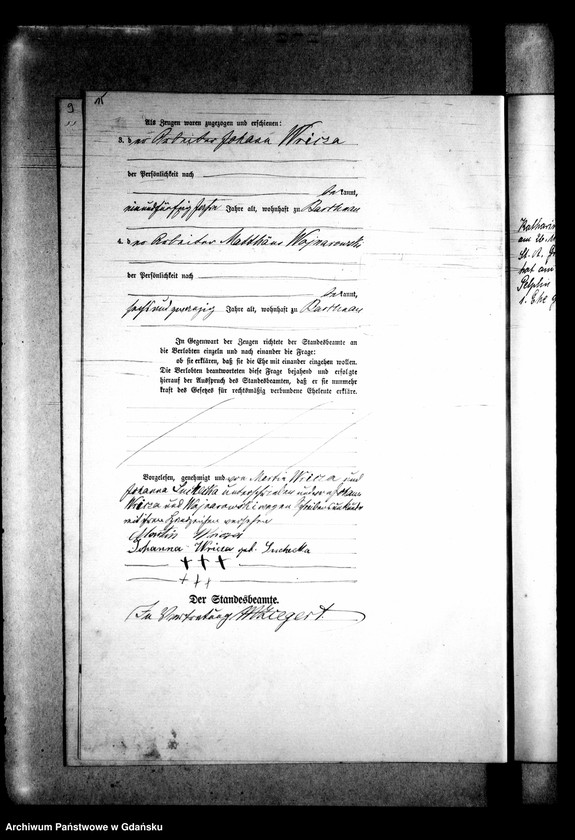 9
Als Zeugen waren zugezogen und erschienen:
3. der Arbeiter Johann Wricza
der Persönlichkeit nach
bekannt,
Jahre alt, wohnhaft zu
4. der Arbeiter Matthäus Wojnarowski
der Persönlichkeit nach
bekannt,
sechsundzwanzig Jahre alt, wohnhaft zu
In Gegenwart der Zeugen richtete der Standesbeamte an
die Verlobten einzeln und nach einander die Frage:
ob sie erklären, daß sie die Ehe mit einander eingehen wollen.
Die Verlobten beantworteten diese Frage bejahend und erfolgte
hierauf der Ausspruch des Standesbeamten, daß er sie nunmehr
kraft des Gesetzes für rechtsmäßig verbundene Eheleute erkläre.
Vorgelesen, genehmigt und von Martin Wricza und
Johanna unterschrieben und von Johann
Wricza und Wojnarowski wegen Schreibensunkunde
mit ihren Handzeichen versehen
Martin Wricza
Johanna Wricza geb.
+++
+++
Der Standesbeamte.
In Vertretung
Katharin
am 26.
St. A.
hat am
Pelplin
1. Ehe
Archiwum Państwowe w Gdańsku